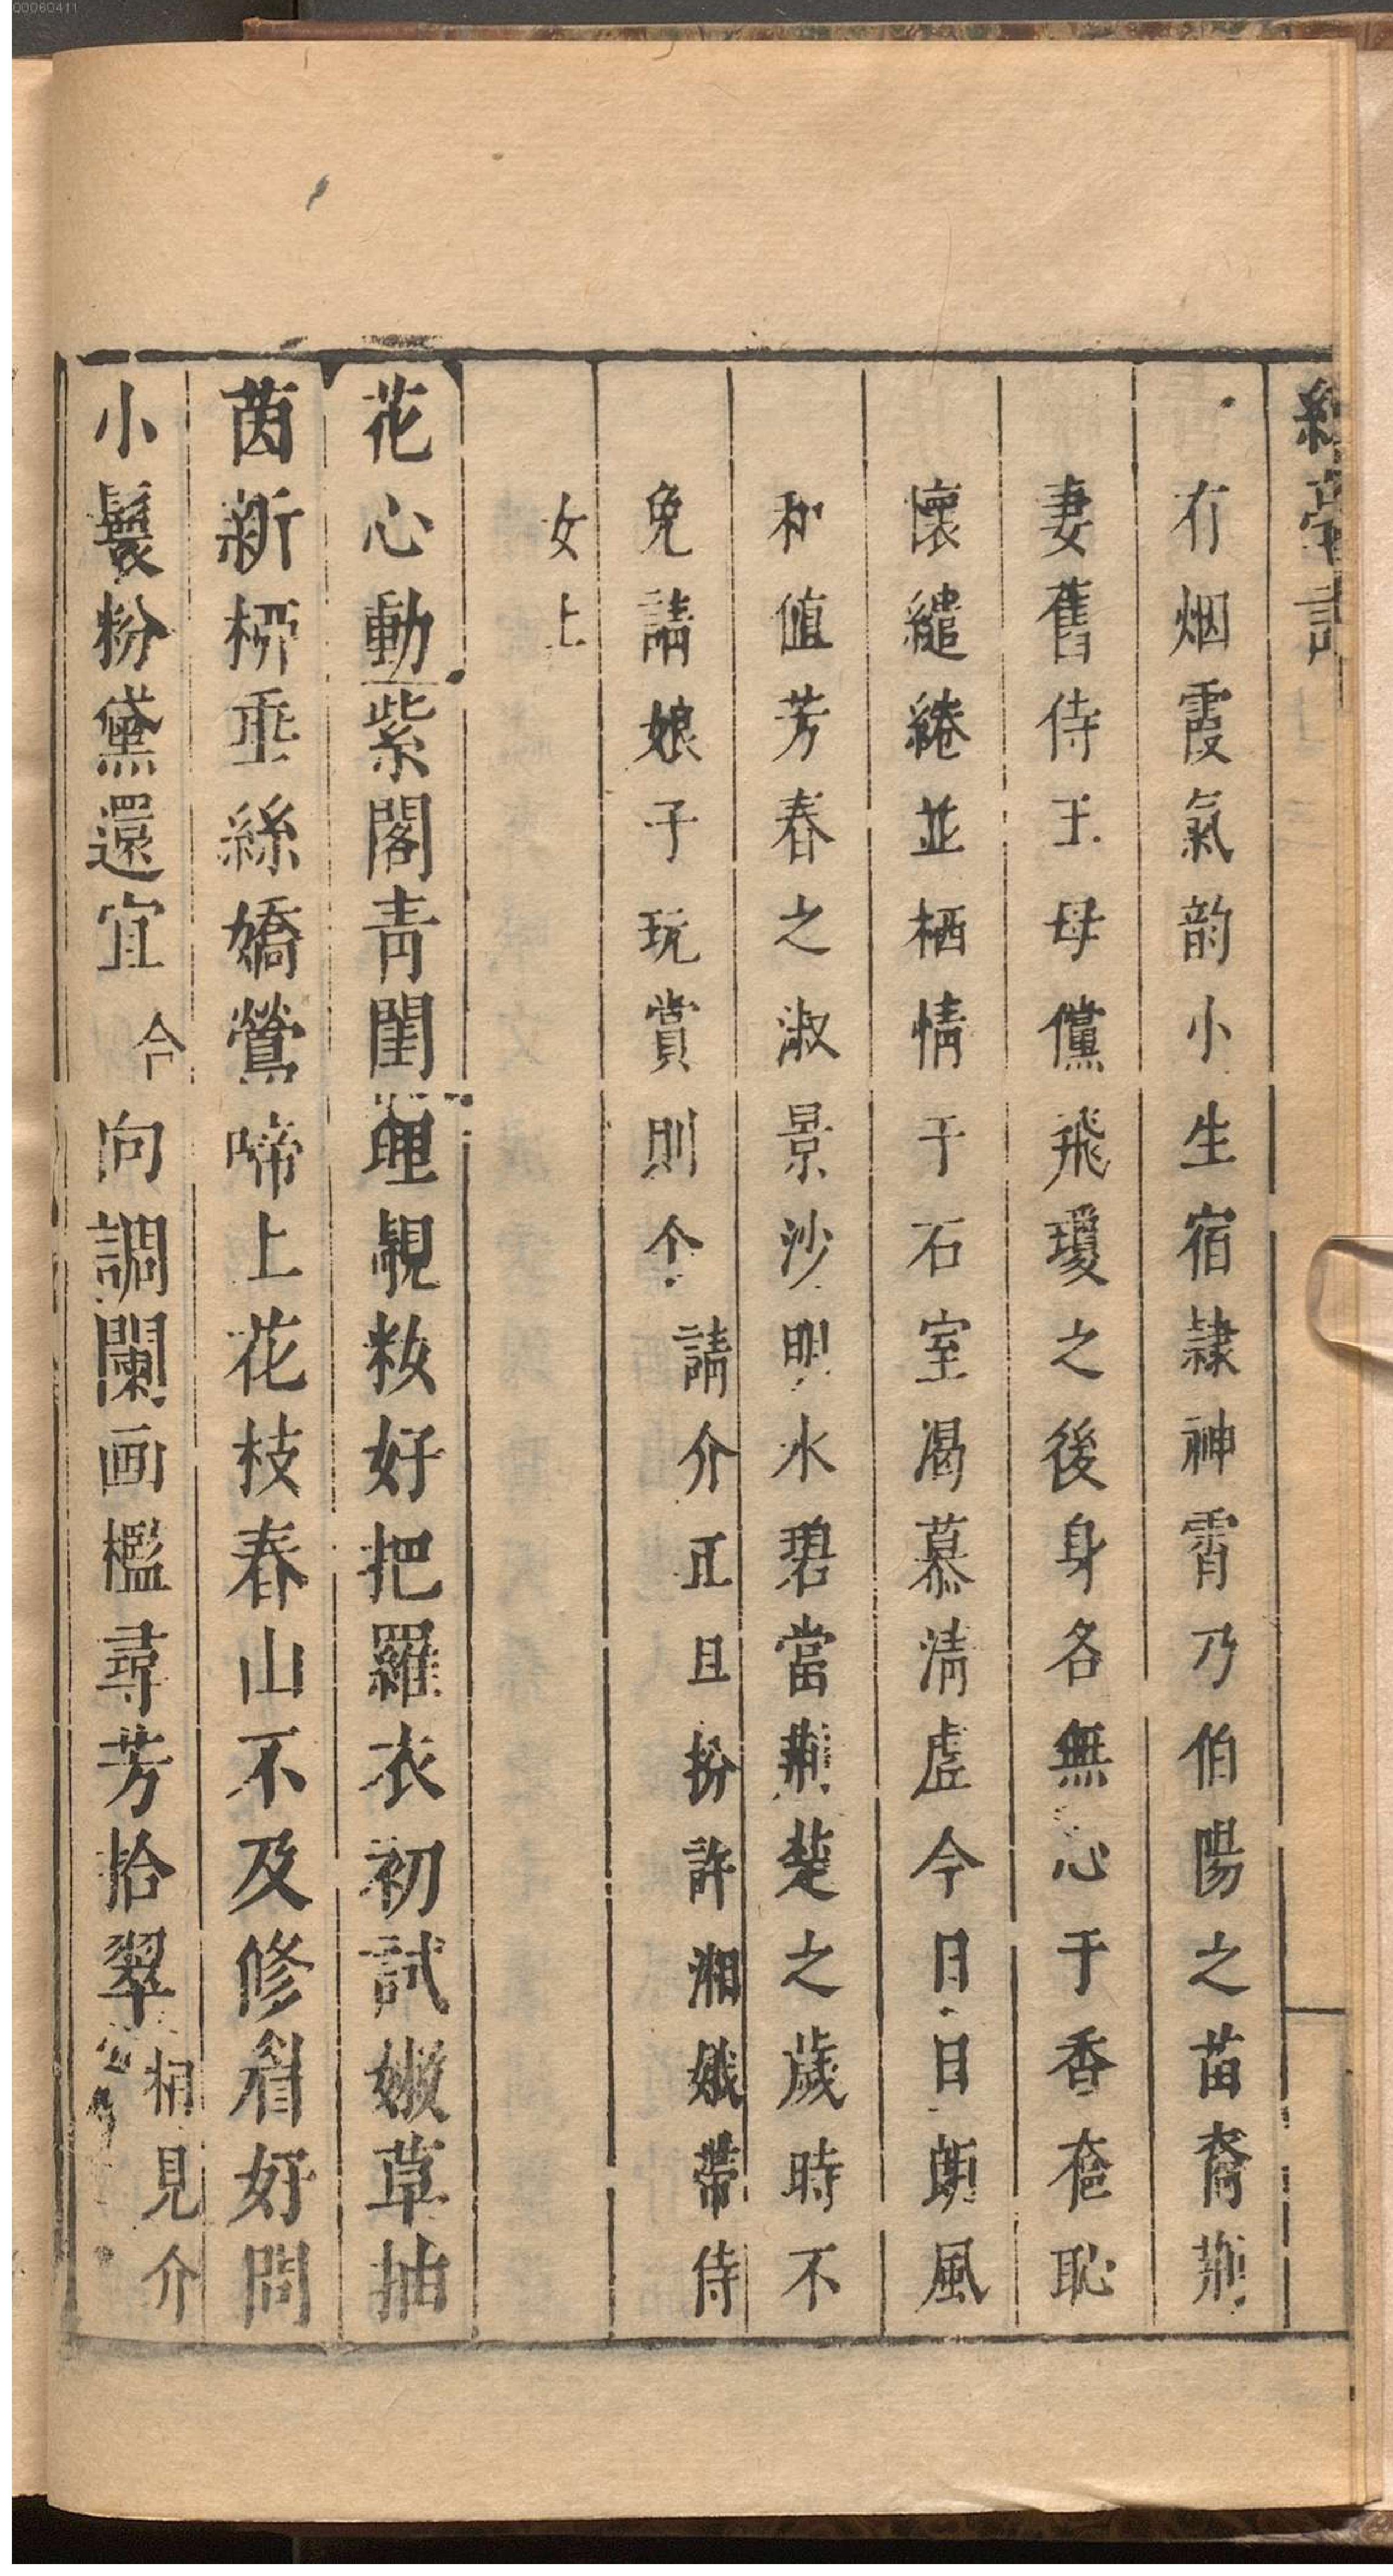 00060411
冇烟霞氣韵小生宿隷神霄乃伯陽之苗裔荊
妻舊侍王母儻飛瓊之後身各無心于香奩恥
懷繾綣並栖情于石室渴慕淸虛今日日朗風
和值芳春之淑景沙明水碧當荊楚之歲時不
免請娘子玩賞則个請介正旦扮許湘娥帶侍
女上
花心動紫閣靑閨理靚粧好把羅衣初試嫩草抽
茵新桺垂絲嬌鶯啼上花枝春山不及修眉好問
小鬟粉黛還宜合向調闌画檻尋芳拾翠相見介